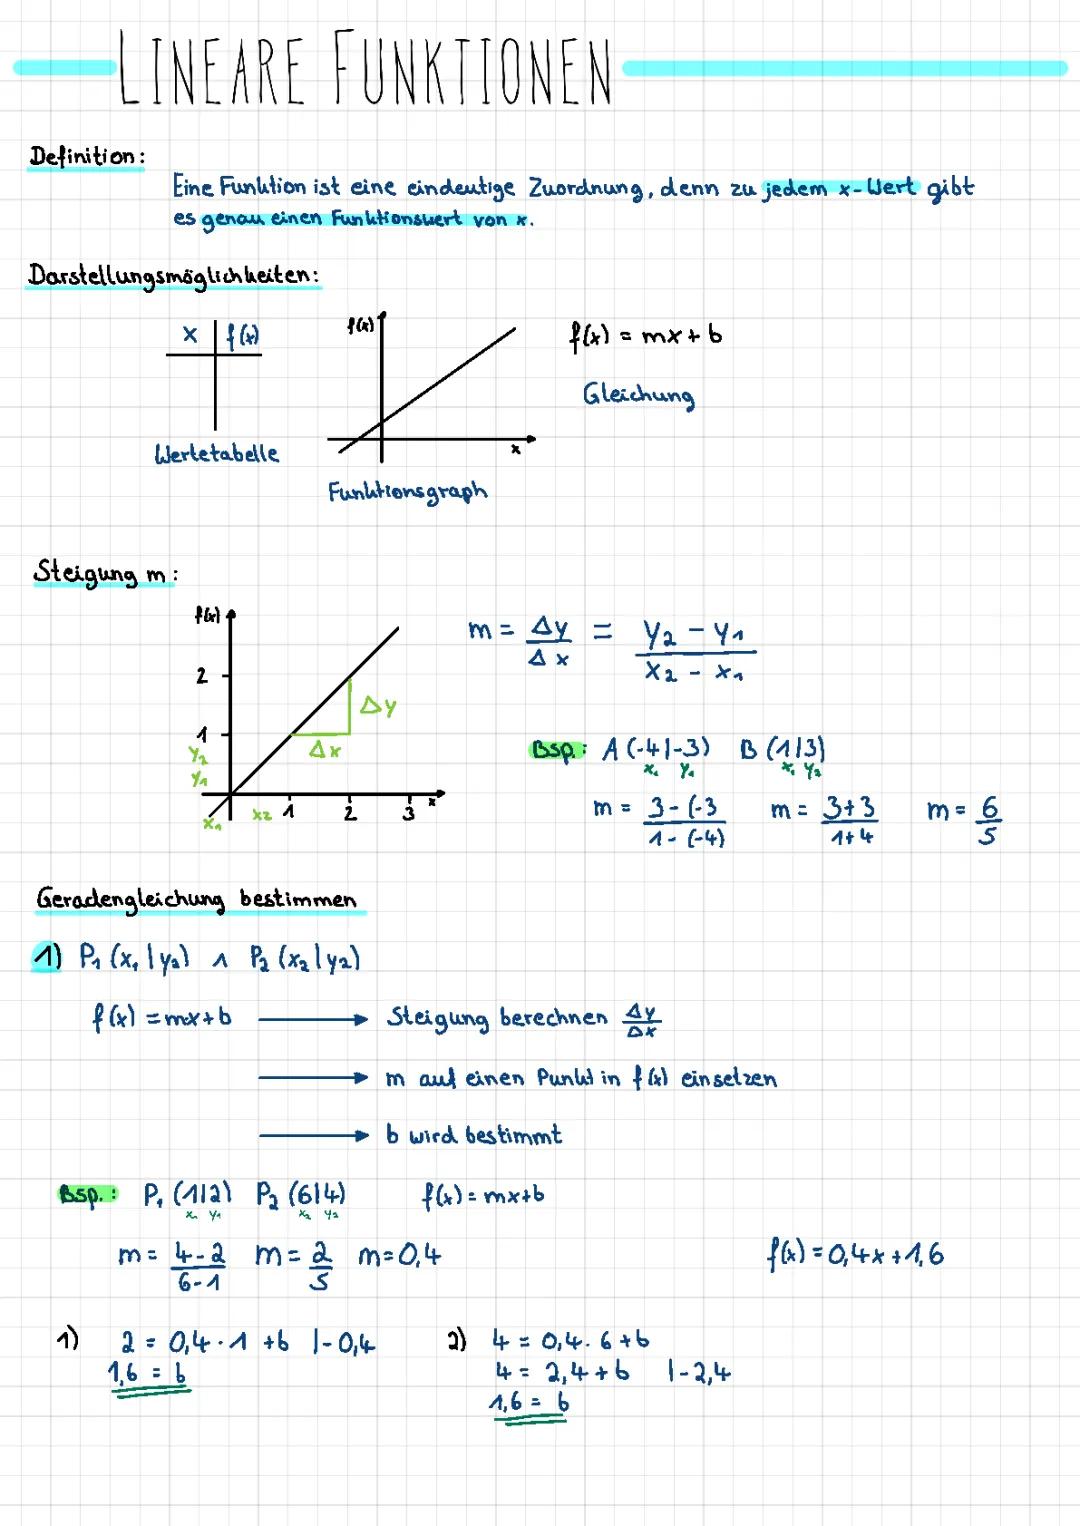 LINEARE FUNKTIONEN
Definition:
Eine Funktion ist eine eindeutige Zuordnung, denn zu jedem x-Wert gibt
es genau einen Funktionswert von x.
Darstellungsmöglichkeiten:
x f(x)
Wertetabelle
f(x)
x
Funktionsgraph
f(x) = mx + b
Gleichung
Steigung m:
f(x)
2
1
y₂
y₁
x₁ x₂ 1 2 3 x
Δy
Δx
m = Δy/Δx = (y₂ - y₁)/(x₂ - x₁)
Bsp.: A (-4|-3) B (1|3)
x₁ y₁ x₁ y₂
m = 3-(-3 / 1-(-4) m = 3+3 / 1+4 m = 6/5
Geradengleichung bestimmen
1) P₁ (x₁|y₂) ∧ P₂ (x₂|y₂)
f(x) = mx+b → Steigung berechnen Δy/Δx
→ m auf einen Punkt in f(x) einsetzen
→ b wird bestimmt
Bsp.: P₁ (1|2) P₂ (6|4) f(x) = mx+b
x₁ y₁ x₂ y₂
m = 4-2 / 6-1 m = 2/5 m = 0,4
f(x) = 0,4x + 1,6
1) 2 = 0,4 · 1 + b |-0,4
1,6 = b
2) 4 = 0,4 · 6 + b
4 = 2,4 + b |-2,4
1,6 = b